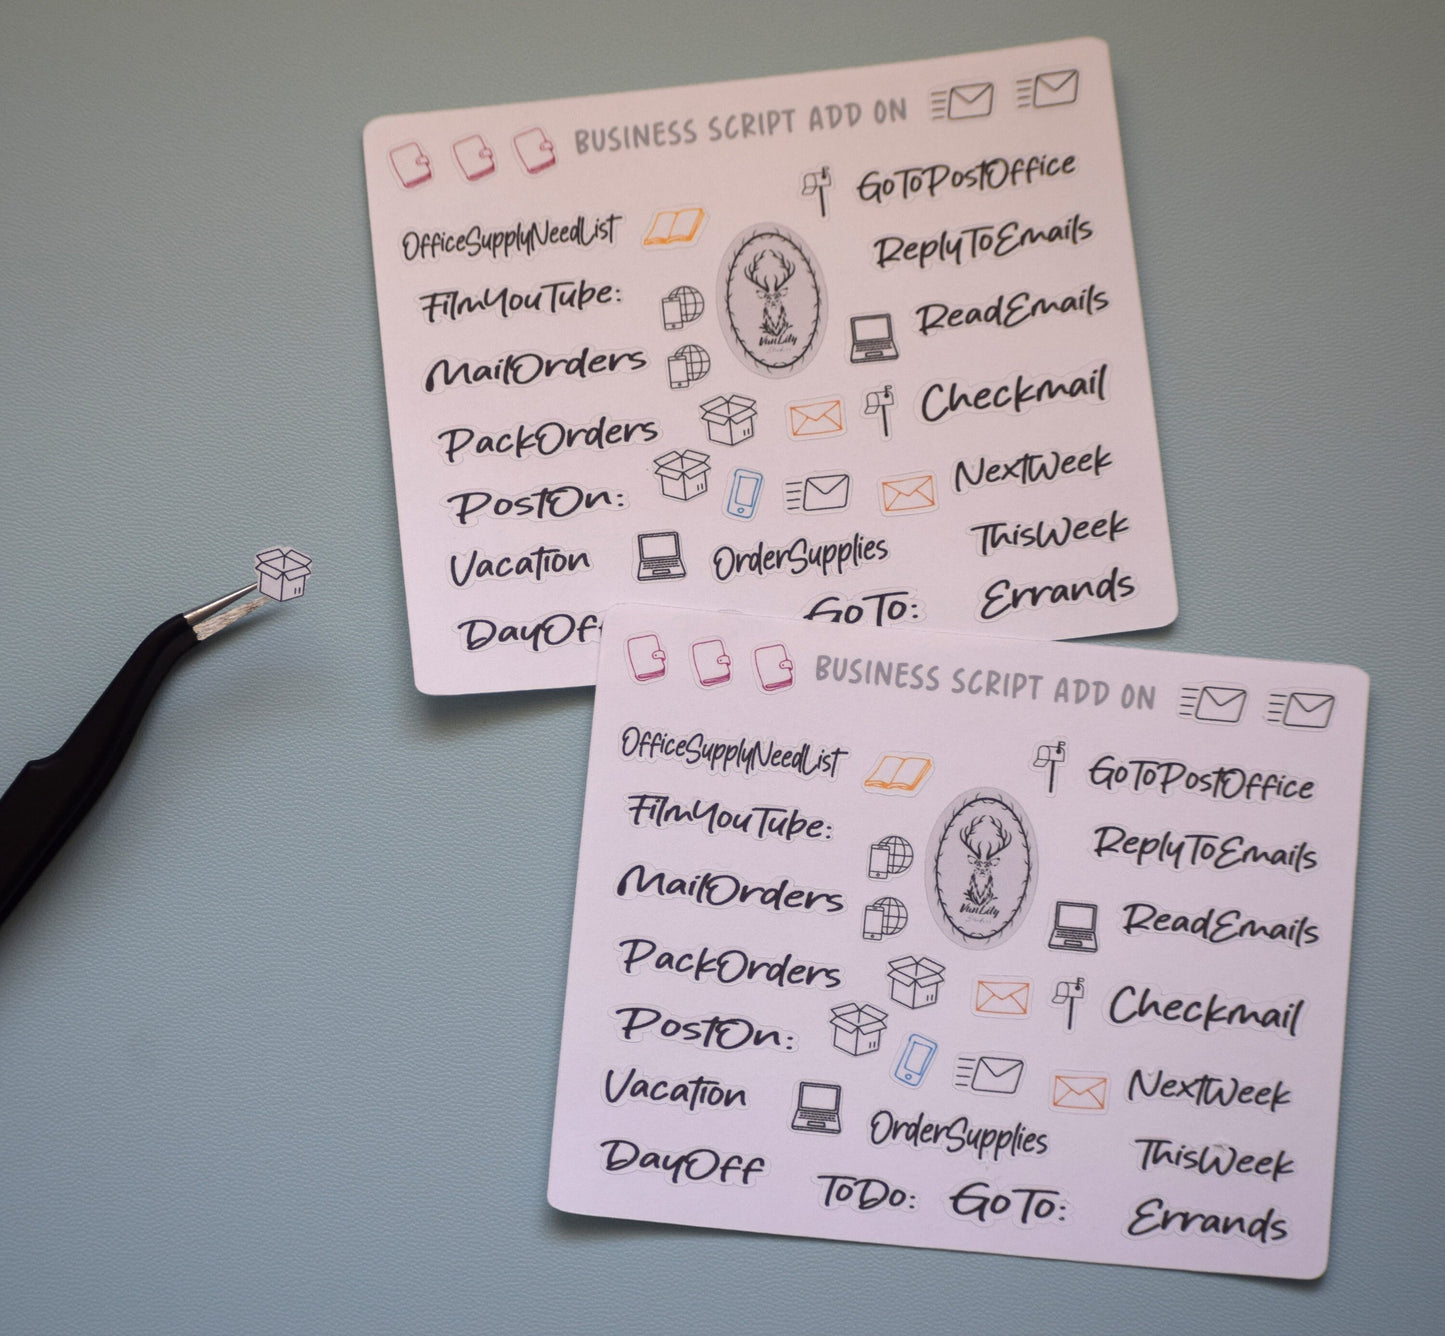 BUSINESS SCRIPT ADD ON
GoToPostOffice
OfficeSupplyNeedList
ReplyToEmails
FilmYouTube:
ReadEmails
VanLily
MailOrders
Checkmail
PackOrders
NextWeek
PostOn:
ThisWeek
Vacation
OrderSupplies
Errands
DayOff
GoTo:
BUSINESS SCRIPT ADD ON
OfficeSupplyNeedList
GoToPostOffice
FilmYouTube:
ReplyToEmails
MailOrders
VanLily
Studios
ReadEmails
PackOrders
Checkmail
PostOn:
NextWeek
Vacation
OrderSupplies
ThisWeek
DayOff
ToDo:
GoTo:
Errands